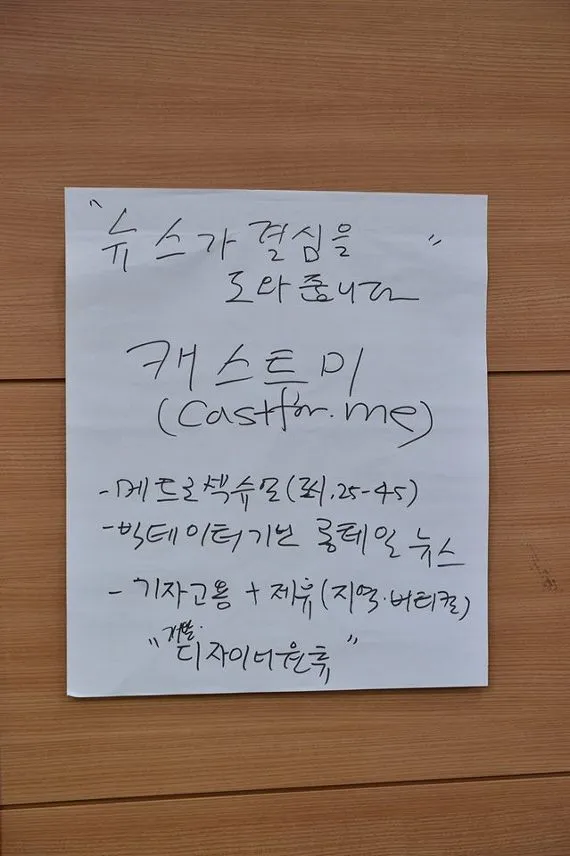 "뉴스가 결심을 "
도와줍니다
캐스트미
(Castfor.me)
-메트로섹슈얼(녀.25-45)
-빅데이터기반 롱테일 뉴스
-기자고용 + 제휴(지역·버티컬)
개발·
"디자이너원츄"